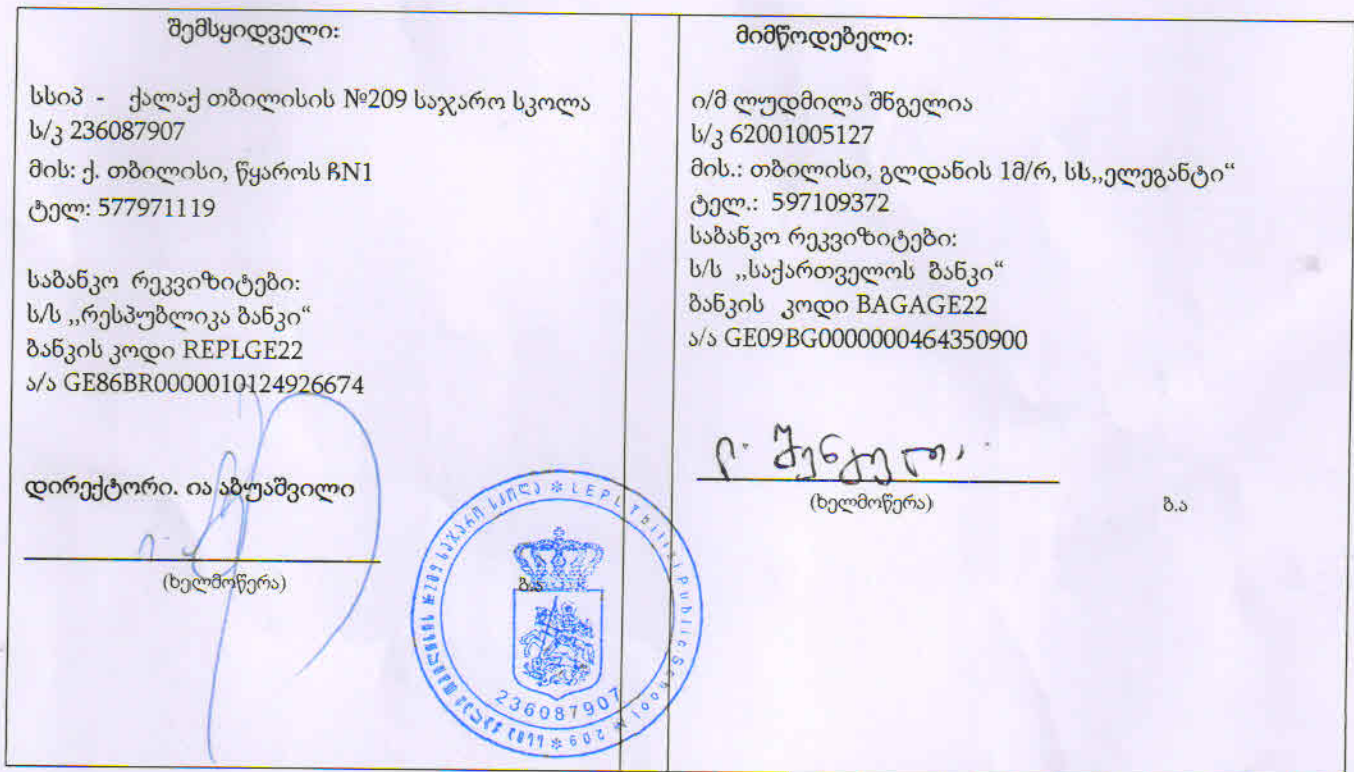 შემსყიდველი:
სსიპ - ქალაქ თბილისის №209 საჯარო სკოლა
ს/კ 236087907
მის: ქ. თბილისი, წყაროს ჩN1
ტელ: 577971119
საბანკო რეკვიზიტები:
ს/ს ,,რესპუბლიკა ბანკი“
ბანკის კოდი REPLGE22
ა/ა GE86BR0000010124926674
დირექტორი. ია აბუაშვილი
(ხელმოწერა)
ბ.ა
LEPL Tbilisi Public School № 209
236087907
მიმწოდებელი:
ი/მ ლუდმილა შნგელია
ს/კ 62001005127
მის.: თბილისი, გლდანის 1მ/რ, სს,,ელეგანტი“
ტელ.: 597109372
საბანკო რეკვიზიტები:
ს/ს ,,საქართველოს ბანკი“
ბანკის კოდი BAGAGE22
ა/ა GE09BG0000000464350900
(ხელმოწერა)
ბ.ა